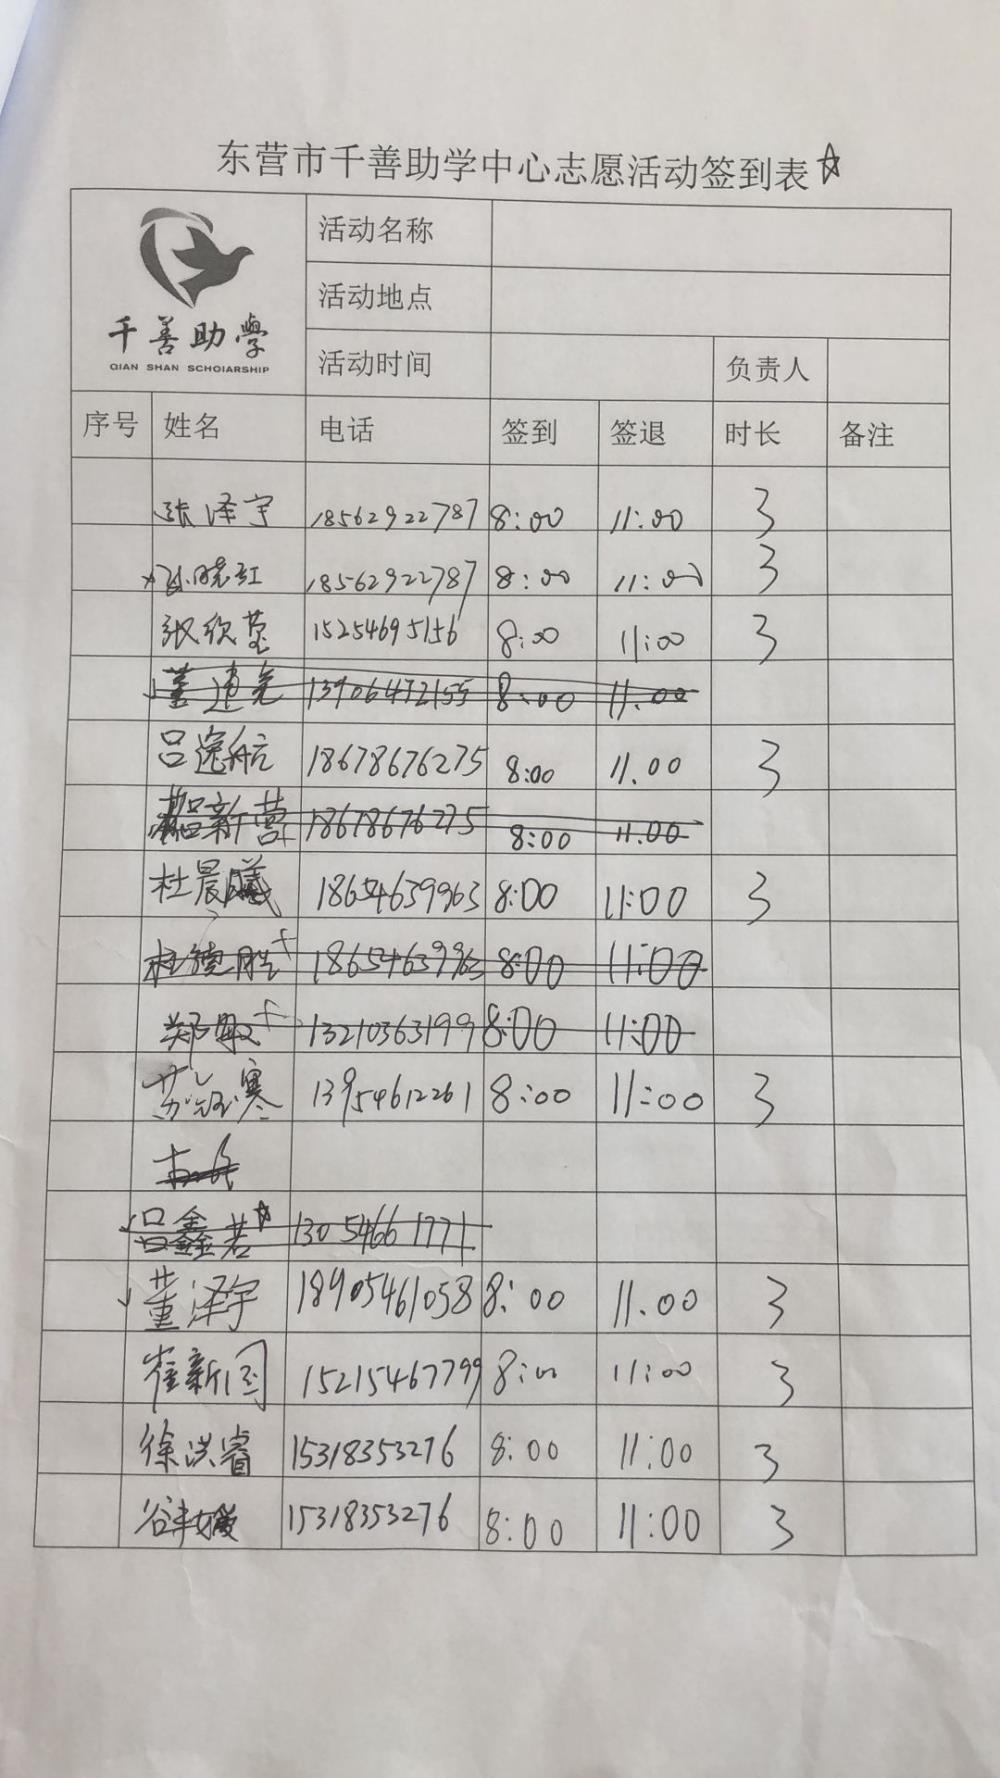 东营市千善助学中心志愿活动签到表☆
千善助學
QIAN SHAN SCHOIARSHIP
活动名称
活动地点
活动时间 负责人
序号 姓名 电话 签到 签退 时长 备注
张泽宇 18562922787 8:00 11:00 3
孙晓红 18562922787 8:00 11:00 3
张欣莹 15254695156 8:00 11:00 3
董建尧 13906472155 8:00 11.00
吕逸航 18678676275 8:00 11.00 3
新营 18678676275 8:00 11.00
杜晨曦 18654639963 8:00 11:00 3
杜德胜 18654639963 8:00 11:00
郑敏 13210363199 8:00 11:00
苏冠寒 13954612261 8:00 11:00 3
吕鑫若 13054661771
董泽宇 18905461058 8:00 11.00 3
崔新阁 15215467799 8:00 11:00 3
徐洪睿 15318353276 8:00 11:00 3
15318353276 8:00 11:00 3